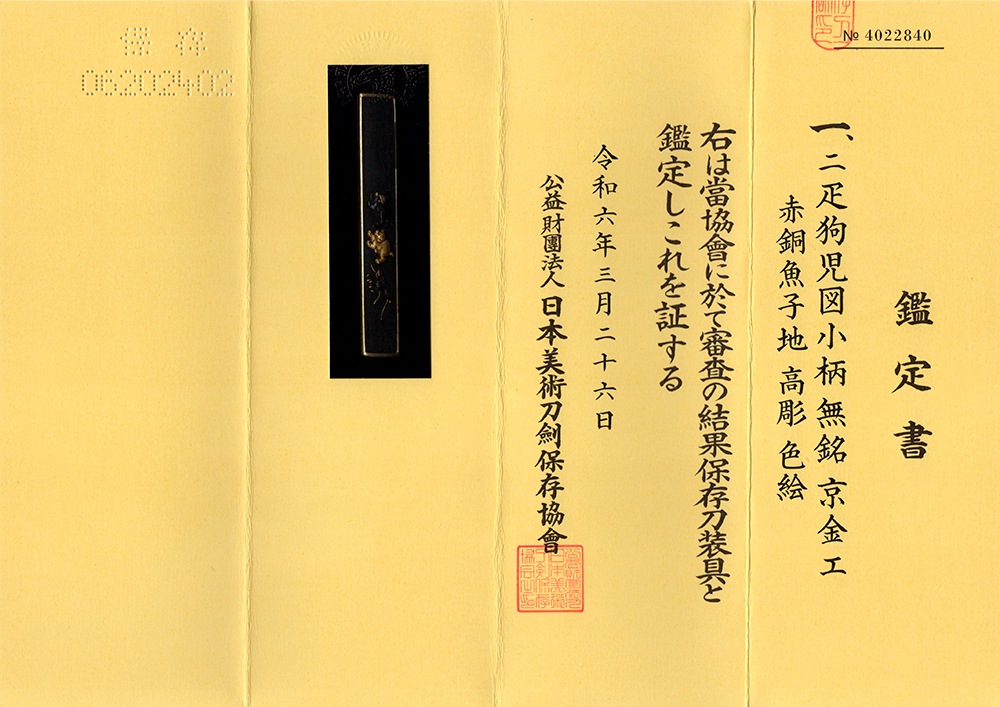 № 4022840
鑑定書
一、二疋狗児図小柄 無銘 京金工
赤銅魚子地 高彫 色絵
右は當協會に於て審査の結果保存刀装具と
鑑定しこれを証する
令和六年三月二十六日
公益財團法人 日本美術刀劍保存協會
保存
06202402